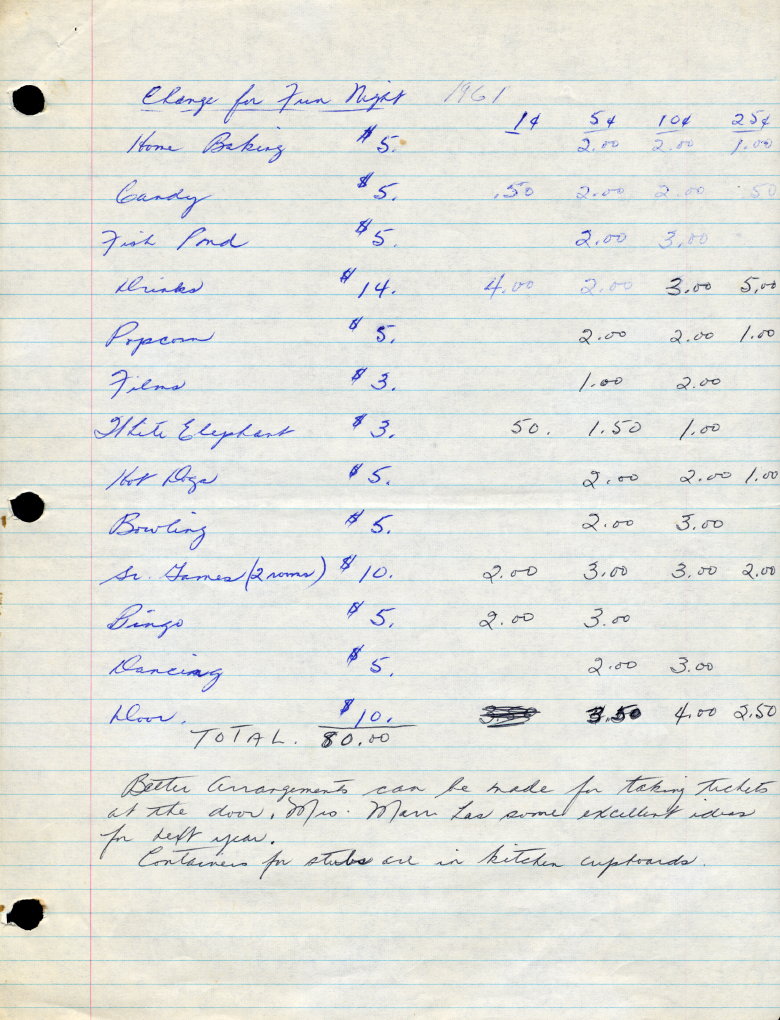 Change for Fun Night 1961
1¢ 5¢ 10¢ 25¢
Home Baking $5. 2.00 2.00 1.00
Candy $5. .50 2.00 2.00 .50
Fish Pond $5. 2.00 3.00
Drinks $14. 4.00 2.00 3.00 5.00
Popcorn $5. 2.00 2.00 1.00
Films $3. 1.00 2.00
White Elephant $3. 50. 1.50 1.00
Hot Dogs $5. 2.00 2.00 1.00
Bowling $5. 2.00 3.00
Sr. Games (2 rooms) $10. 2.00 3.00 3.00 2.00
Bingo $5. 2.00 3.00
Dancing $5. 2.00 3.00
Door. $10. 3.50 4.00 2.50
TOTAL. 80.00
Better arrangements can be made for taking tickets
at the door. Mrs. Marr has some excellent ideas
for next year.
Containers for stubs are in kitchen cupboards.